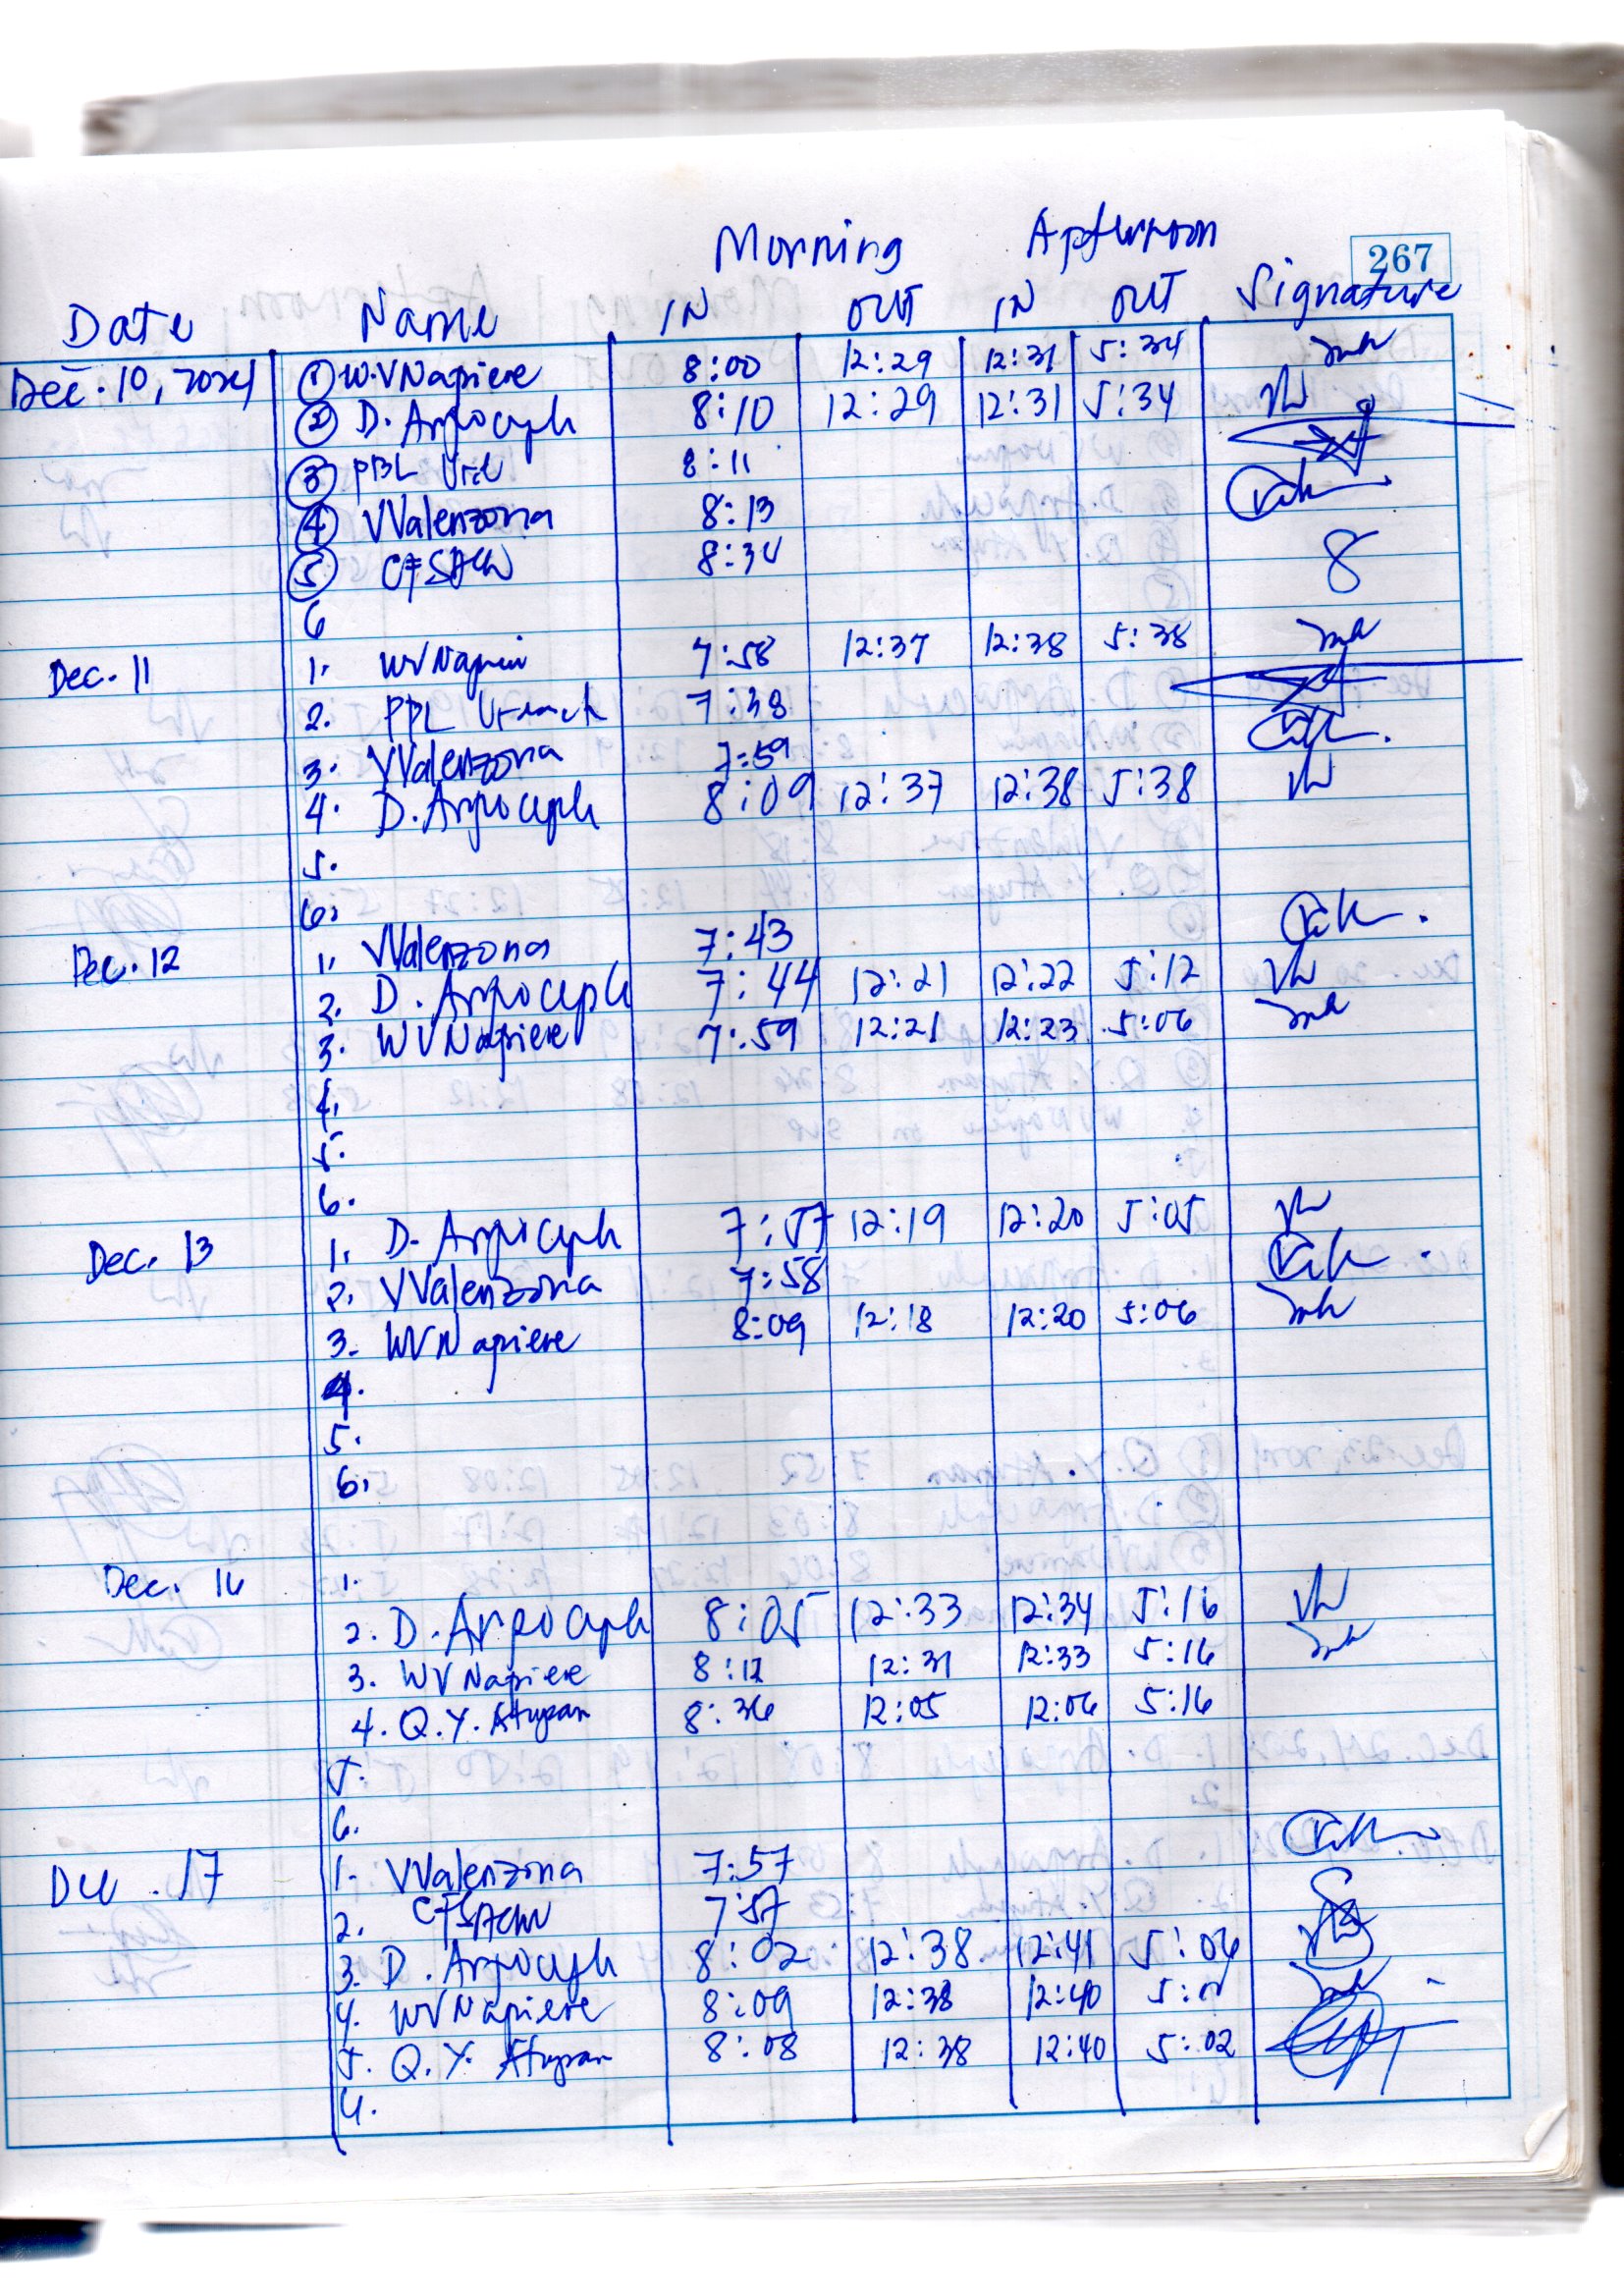 267
Morning Apfternoon
Date Name IN OUT IN OUT Signature
Dec. 10, 2024 1 W.V Napiere 8:00 12:29 12:31 5:34
2 D. 8:10 12:29 12:31 5:34
3 PBL 8:11
4 VValenzona 8:13
5 8:34
6
Dec. 11 1. WV Napiere 7:58 12:37 12:38 5:38
2. PPL 7:38
3. VValenzona 7:59
4. D. 8:09 12:37 12:38 5:38
5.
6.
Dec. 12 1. VValenzona 7:43
2. D. 7:44 12:21 12:22 5:12
3. WV Napiere 7:59 12:21 12:23 5:06
4.
5.
6.
Dec. 13 1. D. 7:57 12:19 12:20 5:05
2. VValenzona 7:58
3. WV Napiere 8:09 12:18 12:20 5:06
4.
5.
6.
Dec. 16 1.
2. D. 8:05 12:33 12:34 5:16
3. WV Napiere 8:12 12:31 12:33 5:16
4. Q.Y. Atupan 8:36 12:05 12:06 5:16
5.
6.
Dec. 17 1. VValenzona 7:57
2. 7:57
3. D. 8:02 12:38 12:41 5:04
4. WV Napiere 8:09 12:38 12:40
5. Q.Y. Atupan 8:08 12:38 12:40 5:02